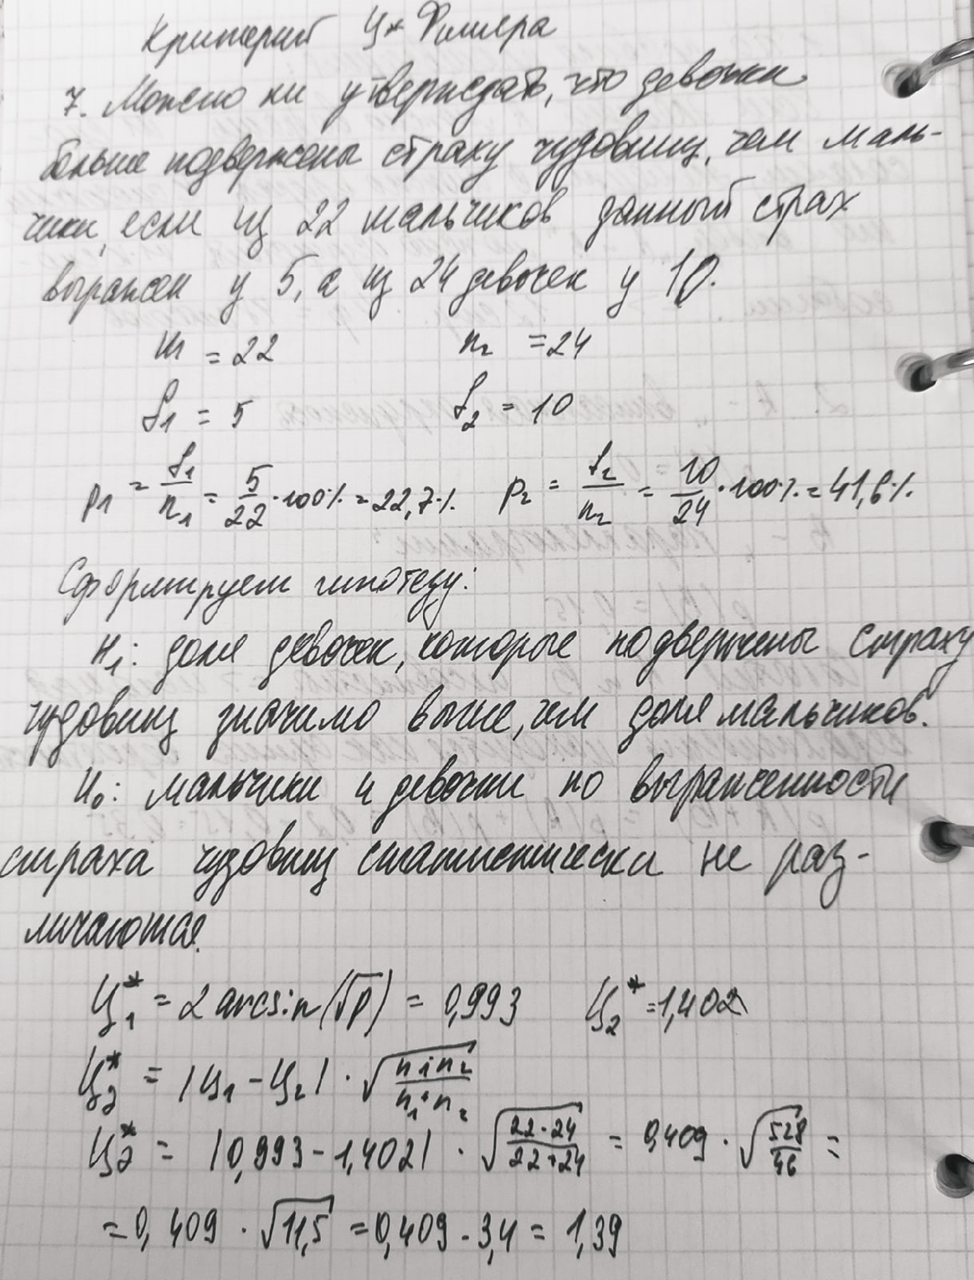 Критерий φ* Фишера
7. Можно ли утверждать, что девочки
больше подвержены страху чудовищ, чем маль-
чики, если из 22 мальчиков данный страх
выражен у 5, а из 24 девочек у 10.
n₁ = 22 n₂ = 24
f₁ = 5 f₂ = 10
p₁ = f₁/n₁ = 5/22 · 100% = 22,7% p₂ = f₂/n₂ = 10/24 · 100% = 41,6%
Сформируем гипотезу:
H₁: доля девочек, которые подвержены страху
чудовищ значимо выше, чем доля мальчиков.
H₀: мальчики и девочки по выраженности
страха чудовищ статистически не раз-
личаются.
φ₁* = 2 arcsin(√p) = 0,993 φ₂* = 1,402
φэ* = |φ₁ - φ₂| · √(n₁n₂/(n₁+n₂))
φэ* = |0,993 - 1,402| · √(22·24/(22+24)) = 0,409 · √(528/46) =
= 0,409 · √11,5 = 0,409 · 3,4 = 1,39